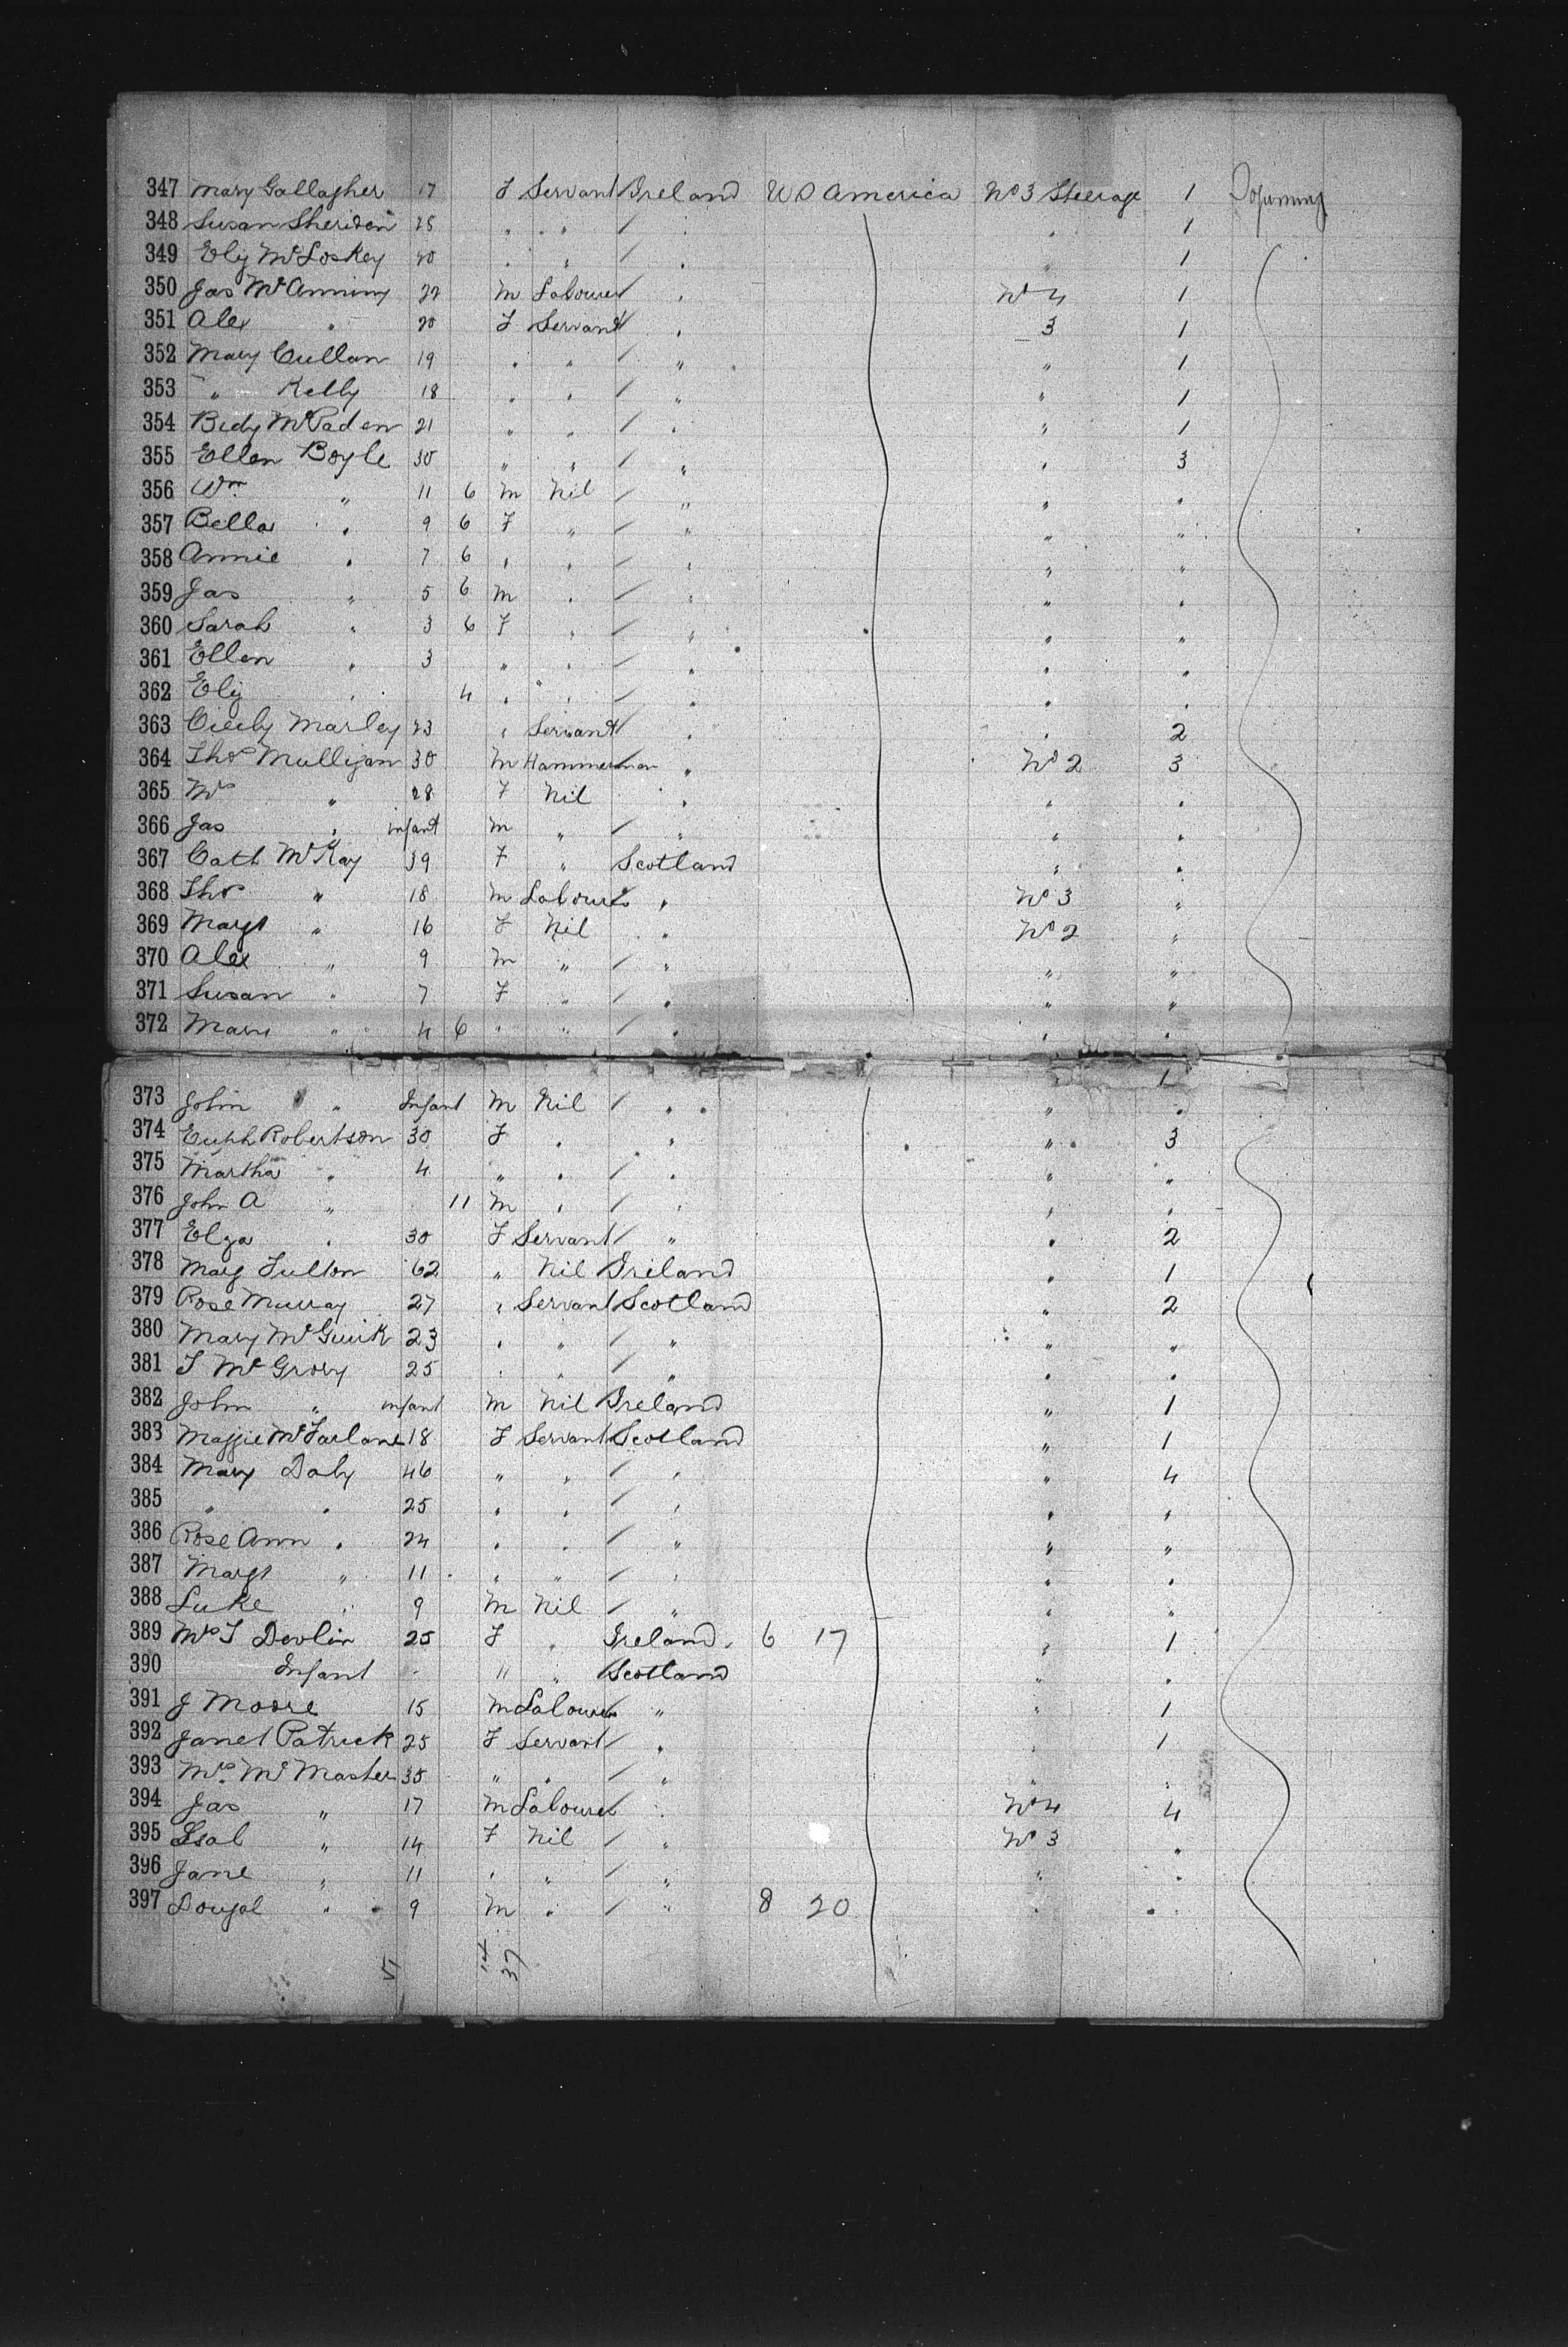 347 Mary Gallagher 17 F Servant Ireland U S America No 3 Steerage 1
348 Susan Sheridan 25 " " / " " 1
349 Eliz McLoskey 20 " " / " " 1
350 Jas McAnniny 22 M Labourer " No 4 1
351 Alex " 20 F Servant " 3 1
352 Mary Cullan 19 " " / " " 1
353 " Kelly 18 " " / " " 1
354 Bidy McPaden 21 " " / " " 1
355 Ellen Boyle 30 " " / " " 3
356 Wm " 11 6 M Nil / " " "
357 Bella " 9 6 F " / " " "
358 Annie " 7 6 " " / " " "
359 Jas " 5 6 M " / " " "
360 Sarah " 3 6 F " / " " "
361 Ellen " 3 " " / " " "
362 Eliz " 4 " " / " " "
363 Cicely Marley 23 " Servant " " 2
364 Thos Mulligan 30 M Hammerman " No 2 3
365 Mrs " 28 F Nil " " "
366 Jas " infant M " / " " "
367 Cath McKay 39 F " Scotland " "
368 Thos " 18 M Labourer " No 3 "
369 Margt " 16 F Nil " No 2 "
370 Alex " 9 M " / " " "
371 Susan " 7 F " / " " "
372 Mary " 4 6 " " / " " "
1
373 John " Infant M Nil / " " "
374 Euph Robertson 30 F " " " 3
375 Martha " 4 " " / " " "
376 John A " 11 M " / " " "
377 Elza " 30 F Servant / " " 2
378 Marg Fulton 62 " Nil Ireland " 1
379 Rose Murray 27 " Servant Scotland " 2
380 Mary McGuirk 23 " " / " " "
381 T McGrory 25 " " / " " "
382 John " infant M Nil Ireland " 1
383 Maggie McFarlane 18 F Servant Scotland " 1
384 Mary Daly 46 " " / " " 4
385 " " 25 " " / " " "
386 Rose Ann " 24 " " / " " "
387 Margt " 11 " " / " " "
388 Luke " 9 M Nil / " " "
389 Mrs T Devlin 25 F " Ireland 6 17 " 1
390 Infant " " " Scotland " "
391 J Moore 15 M Labourer " " 1
392 Janet Patrick 25 F Servant / " " 1
393 Mrs McMaster 35 " " / " " "
394 Jas " 17 M Labourer " No 4 4
395 Isab " 14 F Nil / " No 3 "
396 Jane " 11 " " / " " "
397 Dougal " 9 M " / " 8 20 " "
37